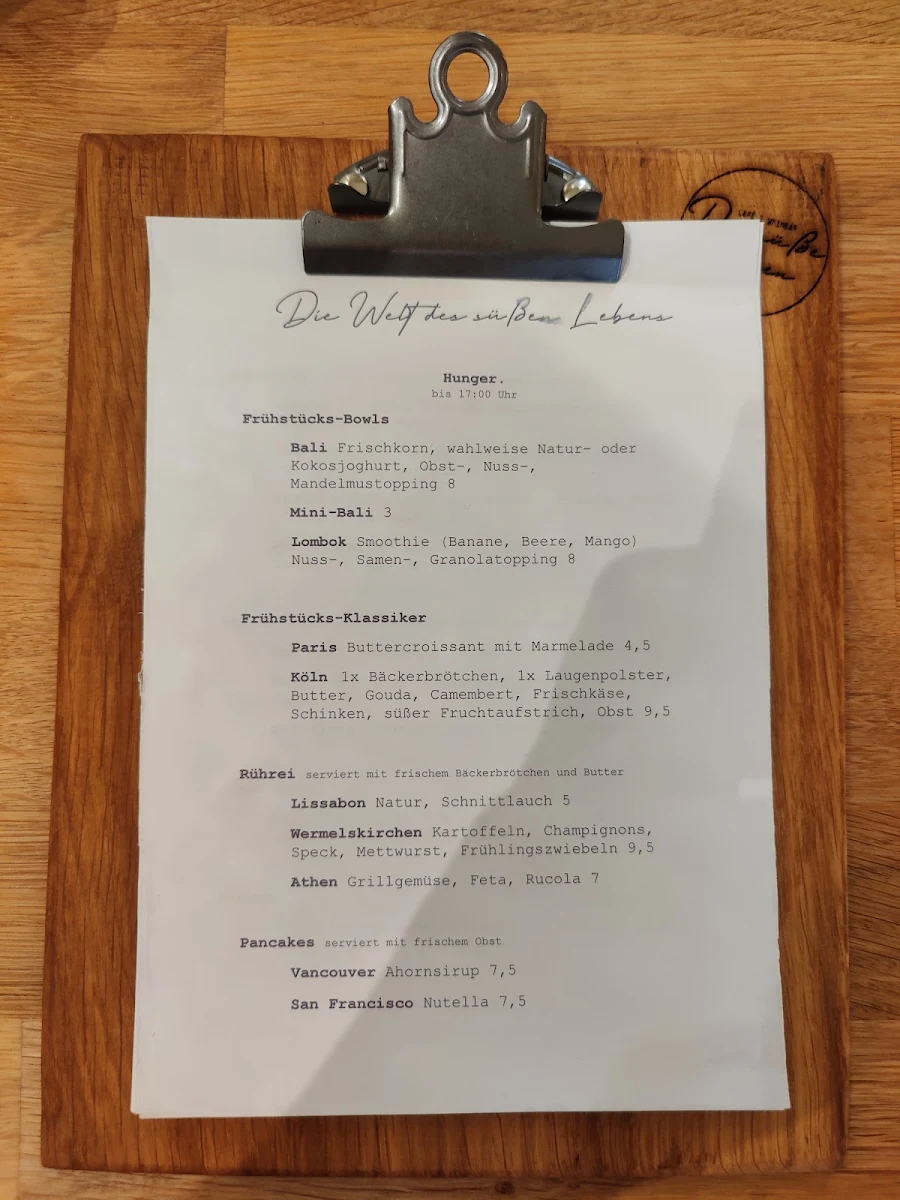 Die Welt des süßen Lebens
Hunger.
bis 17:00 Uhr
Frühstücks-Bowls
Bali Frischkorn, wahlweise Natur- oder
Kokosjoghurt, Obst-, Nuss-,
Mandelmustopping 8
Mini-Bali 3
Lombok Smoothie (Banane, Beere, Mango)
Nuss-, Samen-, Granolatopping 8
Frühstücks-Klassiker
Paris Buttercroissant mit Marmelade 4,5
Köln 1x Bäckerbrötchen, 1x Laugenpolster,
Butter, Gouda, Camembert, Frischkäse,
Schinken, süßer Fruchtaufstrich, Obst 9,5
Rührei serviert mit frischem Bäckerbrötchen und Butter
Lissabon Natur, Schnittlauch 5
Wermelskirchen Kartoffeln, Champignons,
Speck, Mettwurst, Frühlingszwiebeln 9,5
Athen Grillgemüse, Feta, Rucola 7
Pancakes serviert mit frischem Obst
Vancouver Ahornsirup 7,5
San Francisco Nutella 7,5